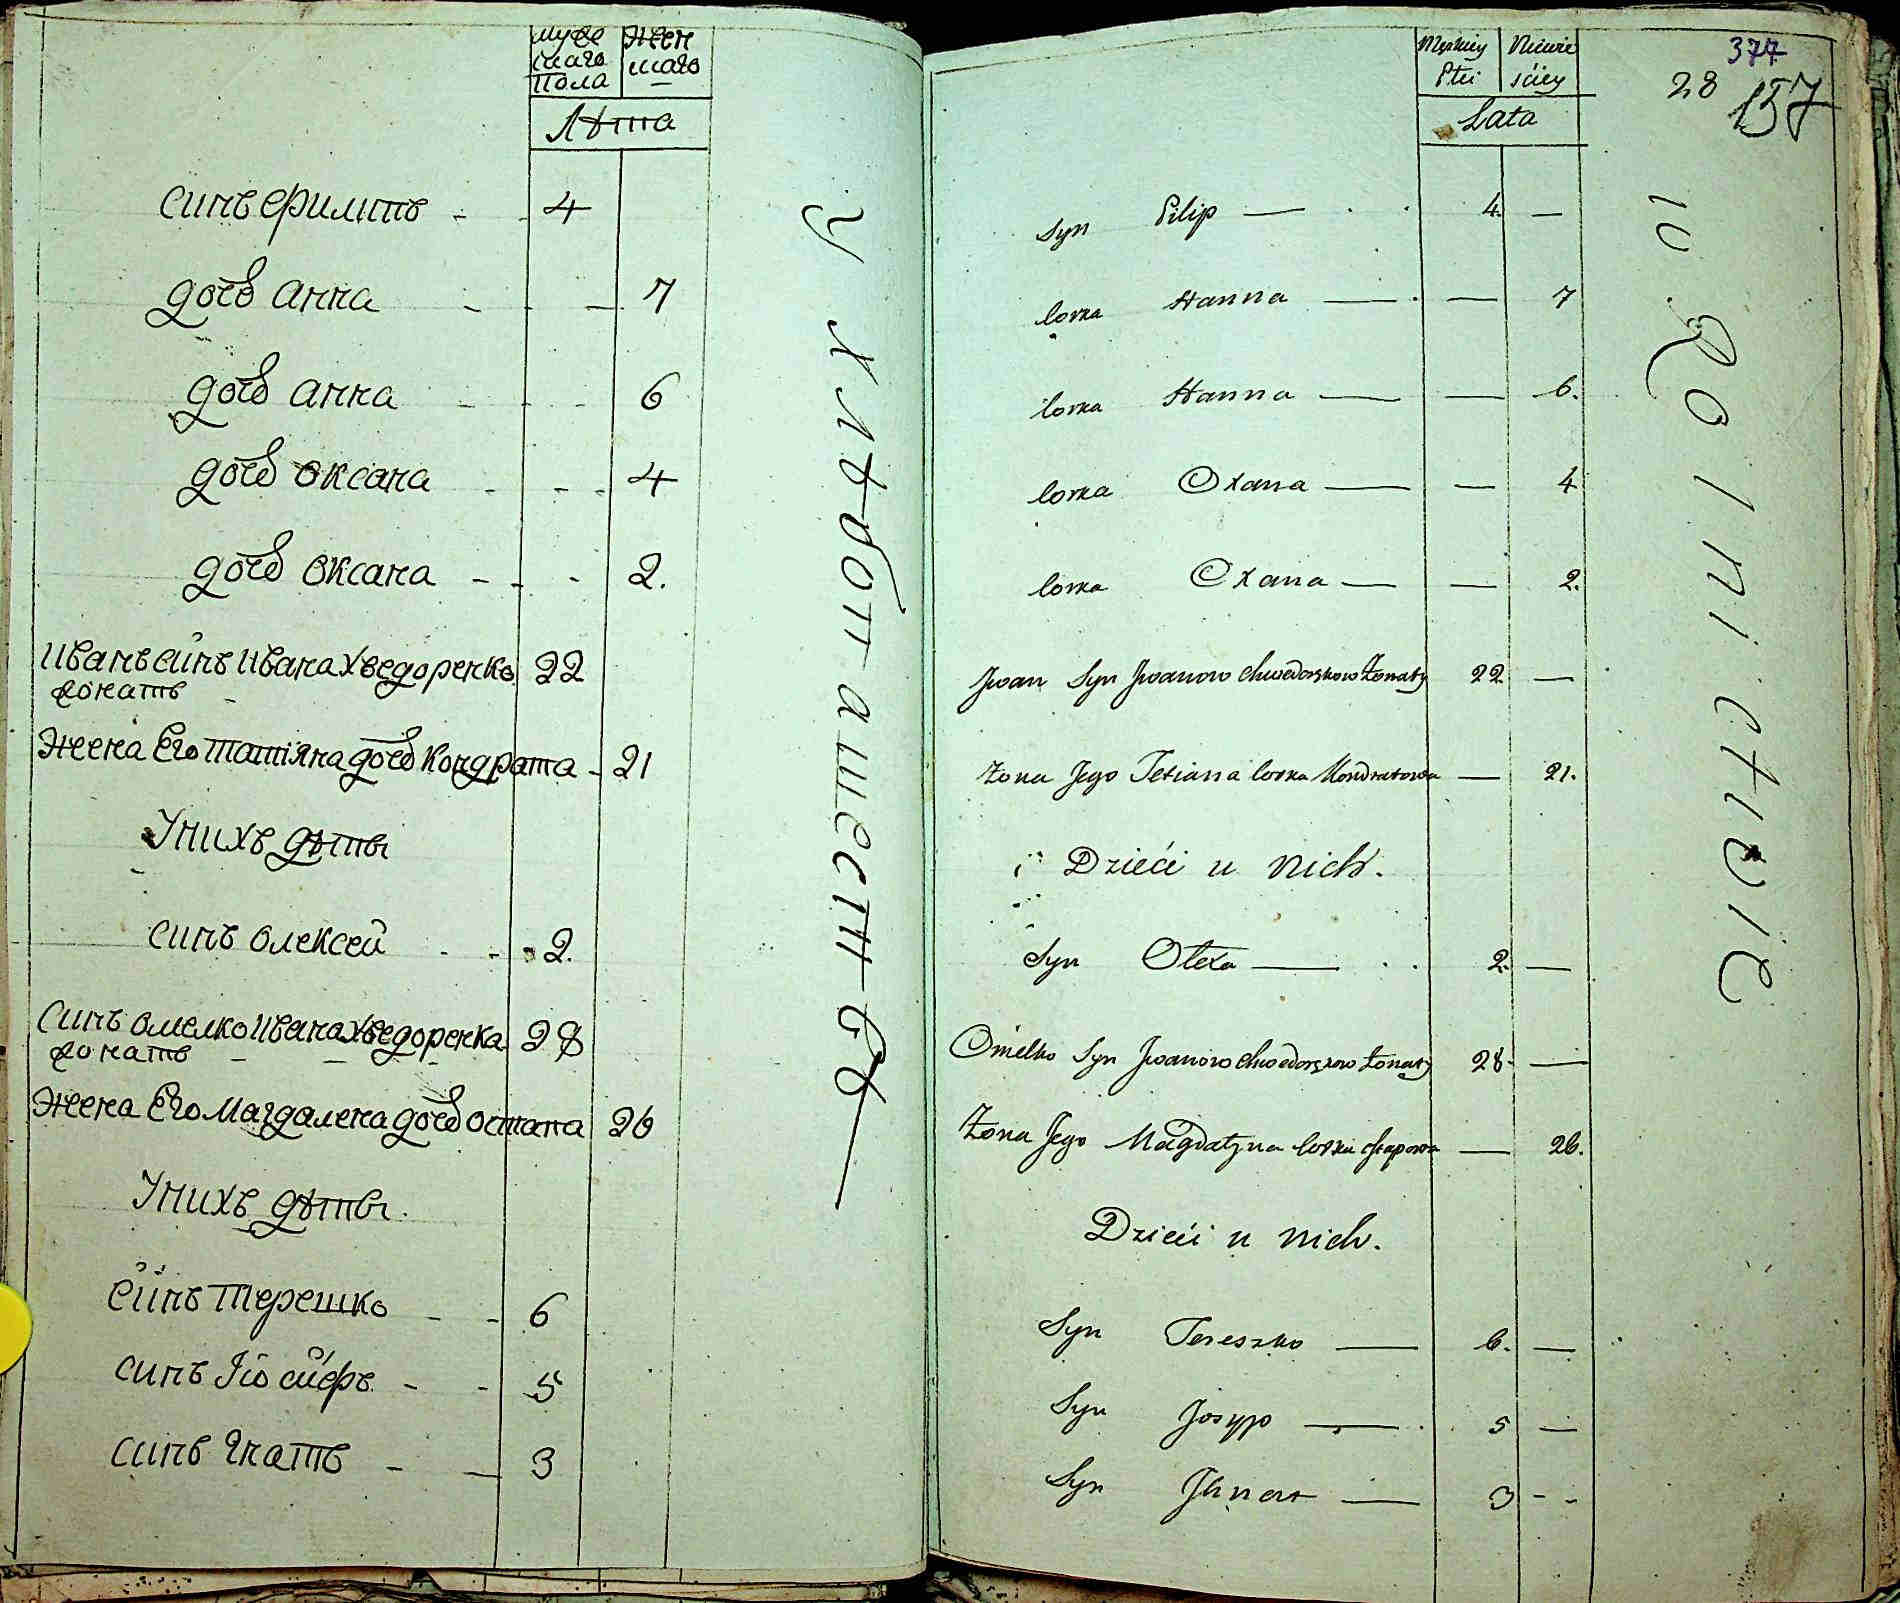 муже Жен
скаго скаго
пола
Лѣта
синъ Филипъ 4
дочь Анна 7
дочь Анна 6
дочь Оксана 4
дочь Оксана 2.
Иванъ синъ Ивана Хведоренко 22
жонатъ
Жена Его Татіяна дочь Кондрата 21
У нихъ дѣти
синъ Олексей 2.
Синъ Омелко Ивана Хведоренка 28
жонатъ
Жена Его Магдалена дочь Остапа 26
У нихъ дѣти.
синъ Терешко 6
синъ Іосифъ 5
синъ Гнатъ 3
У Хлѣбопашествѣ
377
28 157
Męskiey Niewie
Płci sciey
Lata
Syn Pilip 4. —
Corka Hanna — 7
Corka Hanna — 6.
Corka Oxana — 4
Corka Oxana — 2.
Jwan Syn Jwanow Chwedorkow Żonaty 22 —
Żona Jego Tetiana Corka Kondratowa — 21.
Dzieći u nich.
Syn Olexa 2. —
Omelko Syn Jwanow Chwedorkow Żonaty 28. —
Żona Jego Magdałyna Corka Ostapowa — 26.
Dzieći u nich.
Syn Tereszko 6. —
Syn Josyp 5 —
Syn Jhnat 3 - -
w Rolnictwie